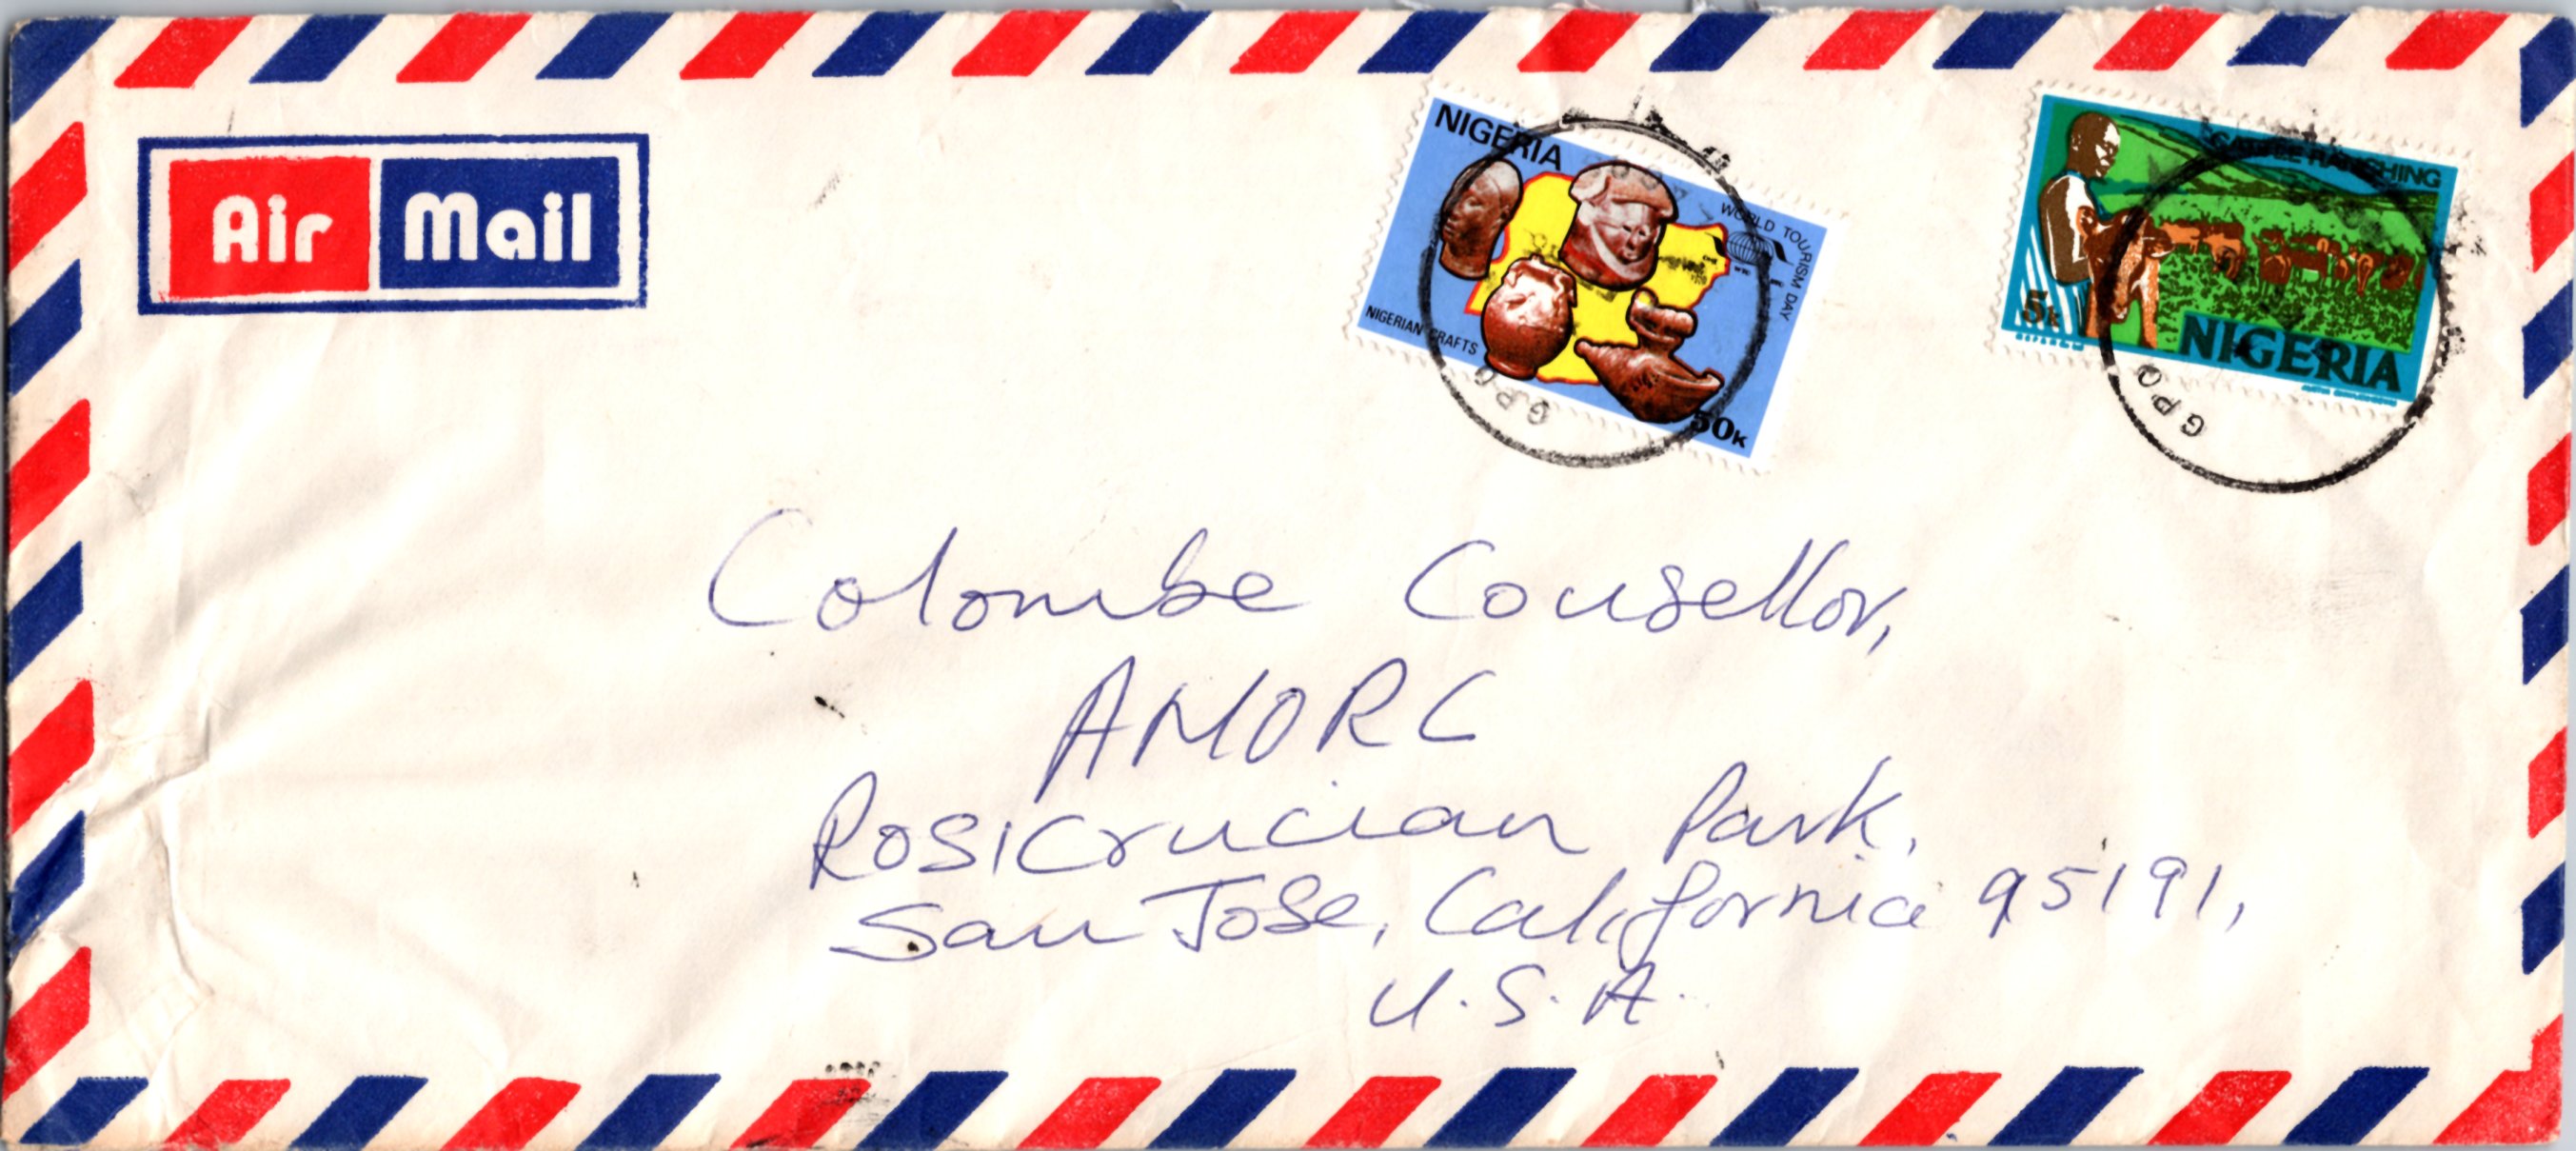 Air Mail
NIGERIA
WORLD TOURISM DAY
NIGERIAN CRAFTS
50K
GPO
CATTLE RANCHING
5k
NIGERIA
GPO
Colombe Cousellor,
AMORC
Rosicrucian Park,
San Jose, California 95191,
U.S.A.